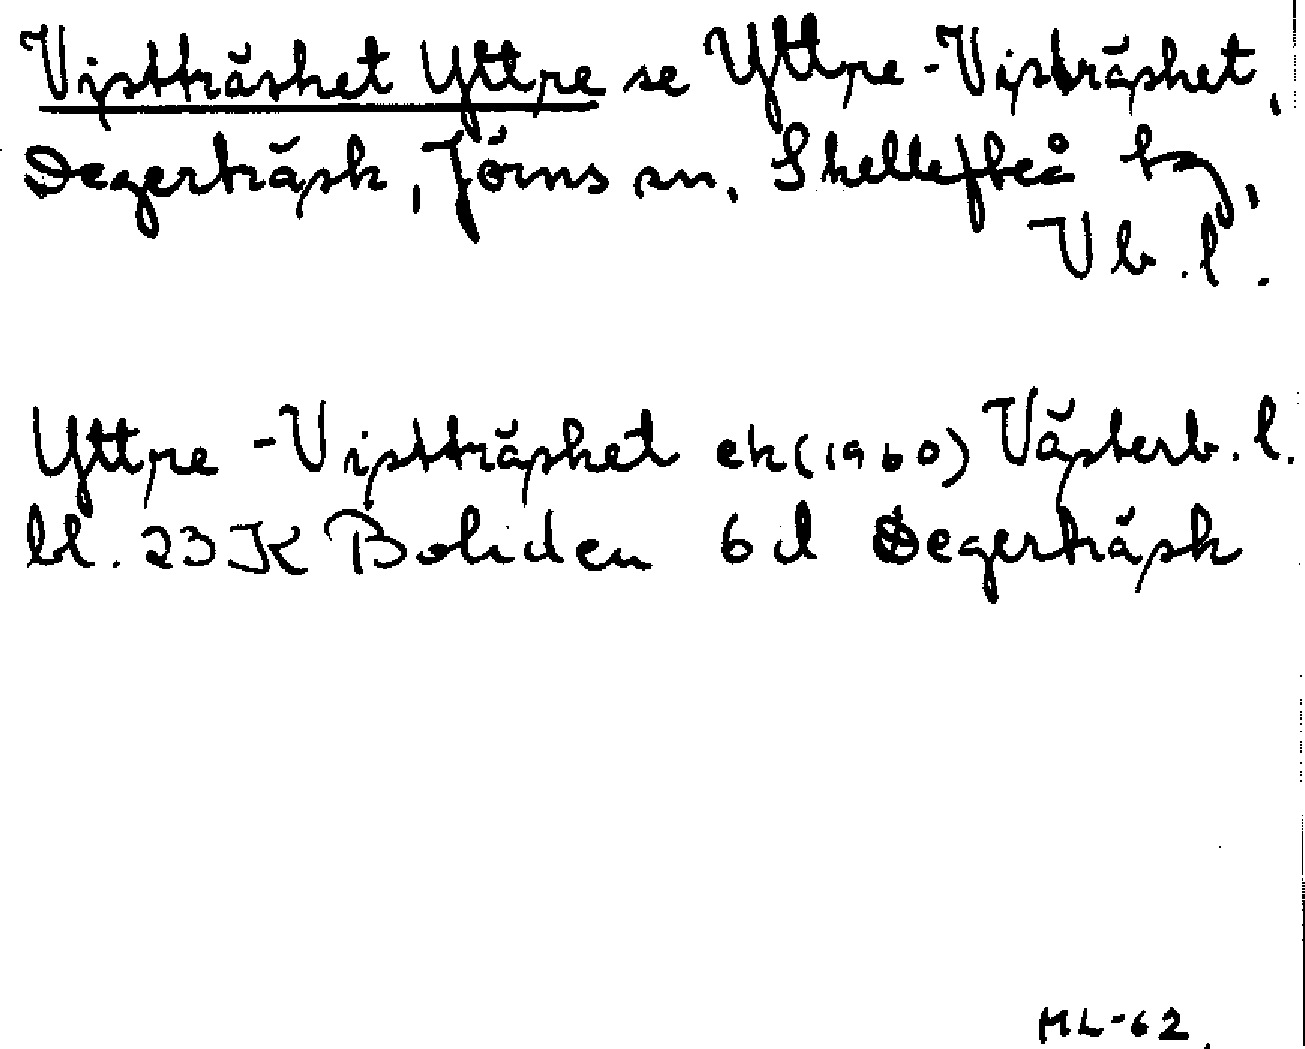 Vistträsket Yttre se Yttre-Visträsket,
Degerträsk, Jörns sn, Skellefteå tg,
Vb.l.
Yttre-Vistträsket ek(1960) Västerb.l.
bl. 23 K Boliden 6d Degerträsk
ML-62